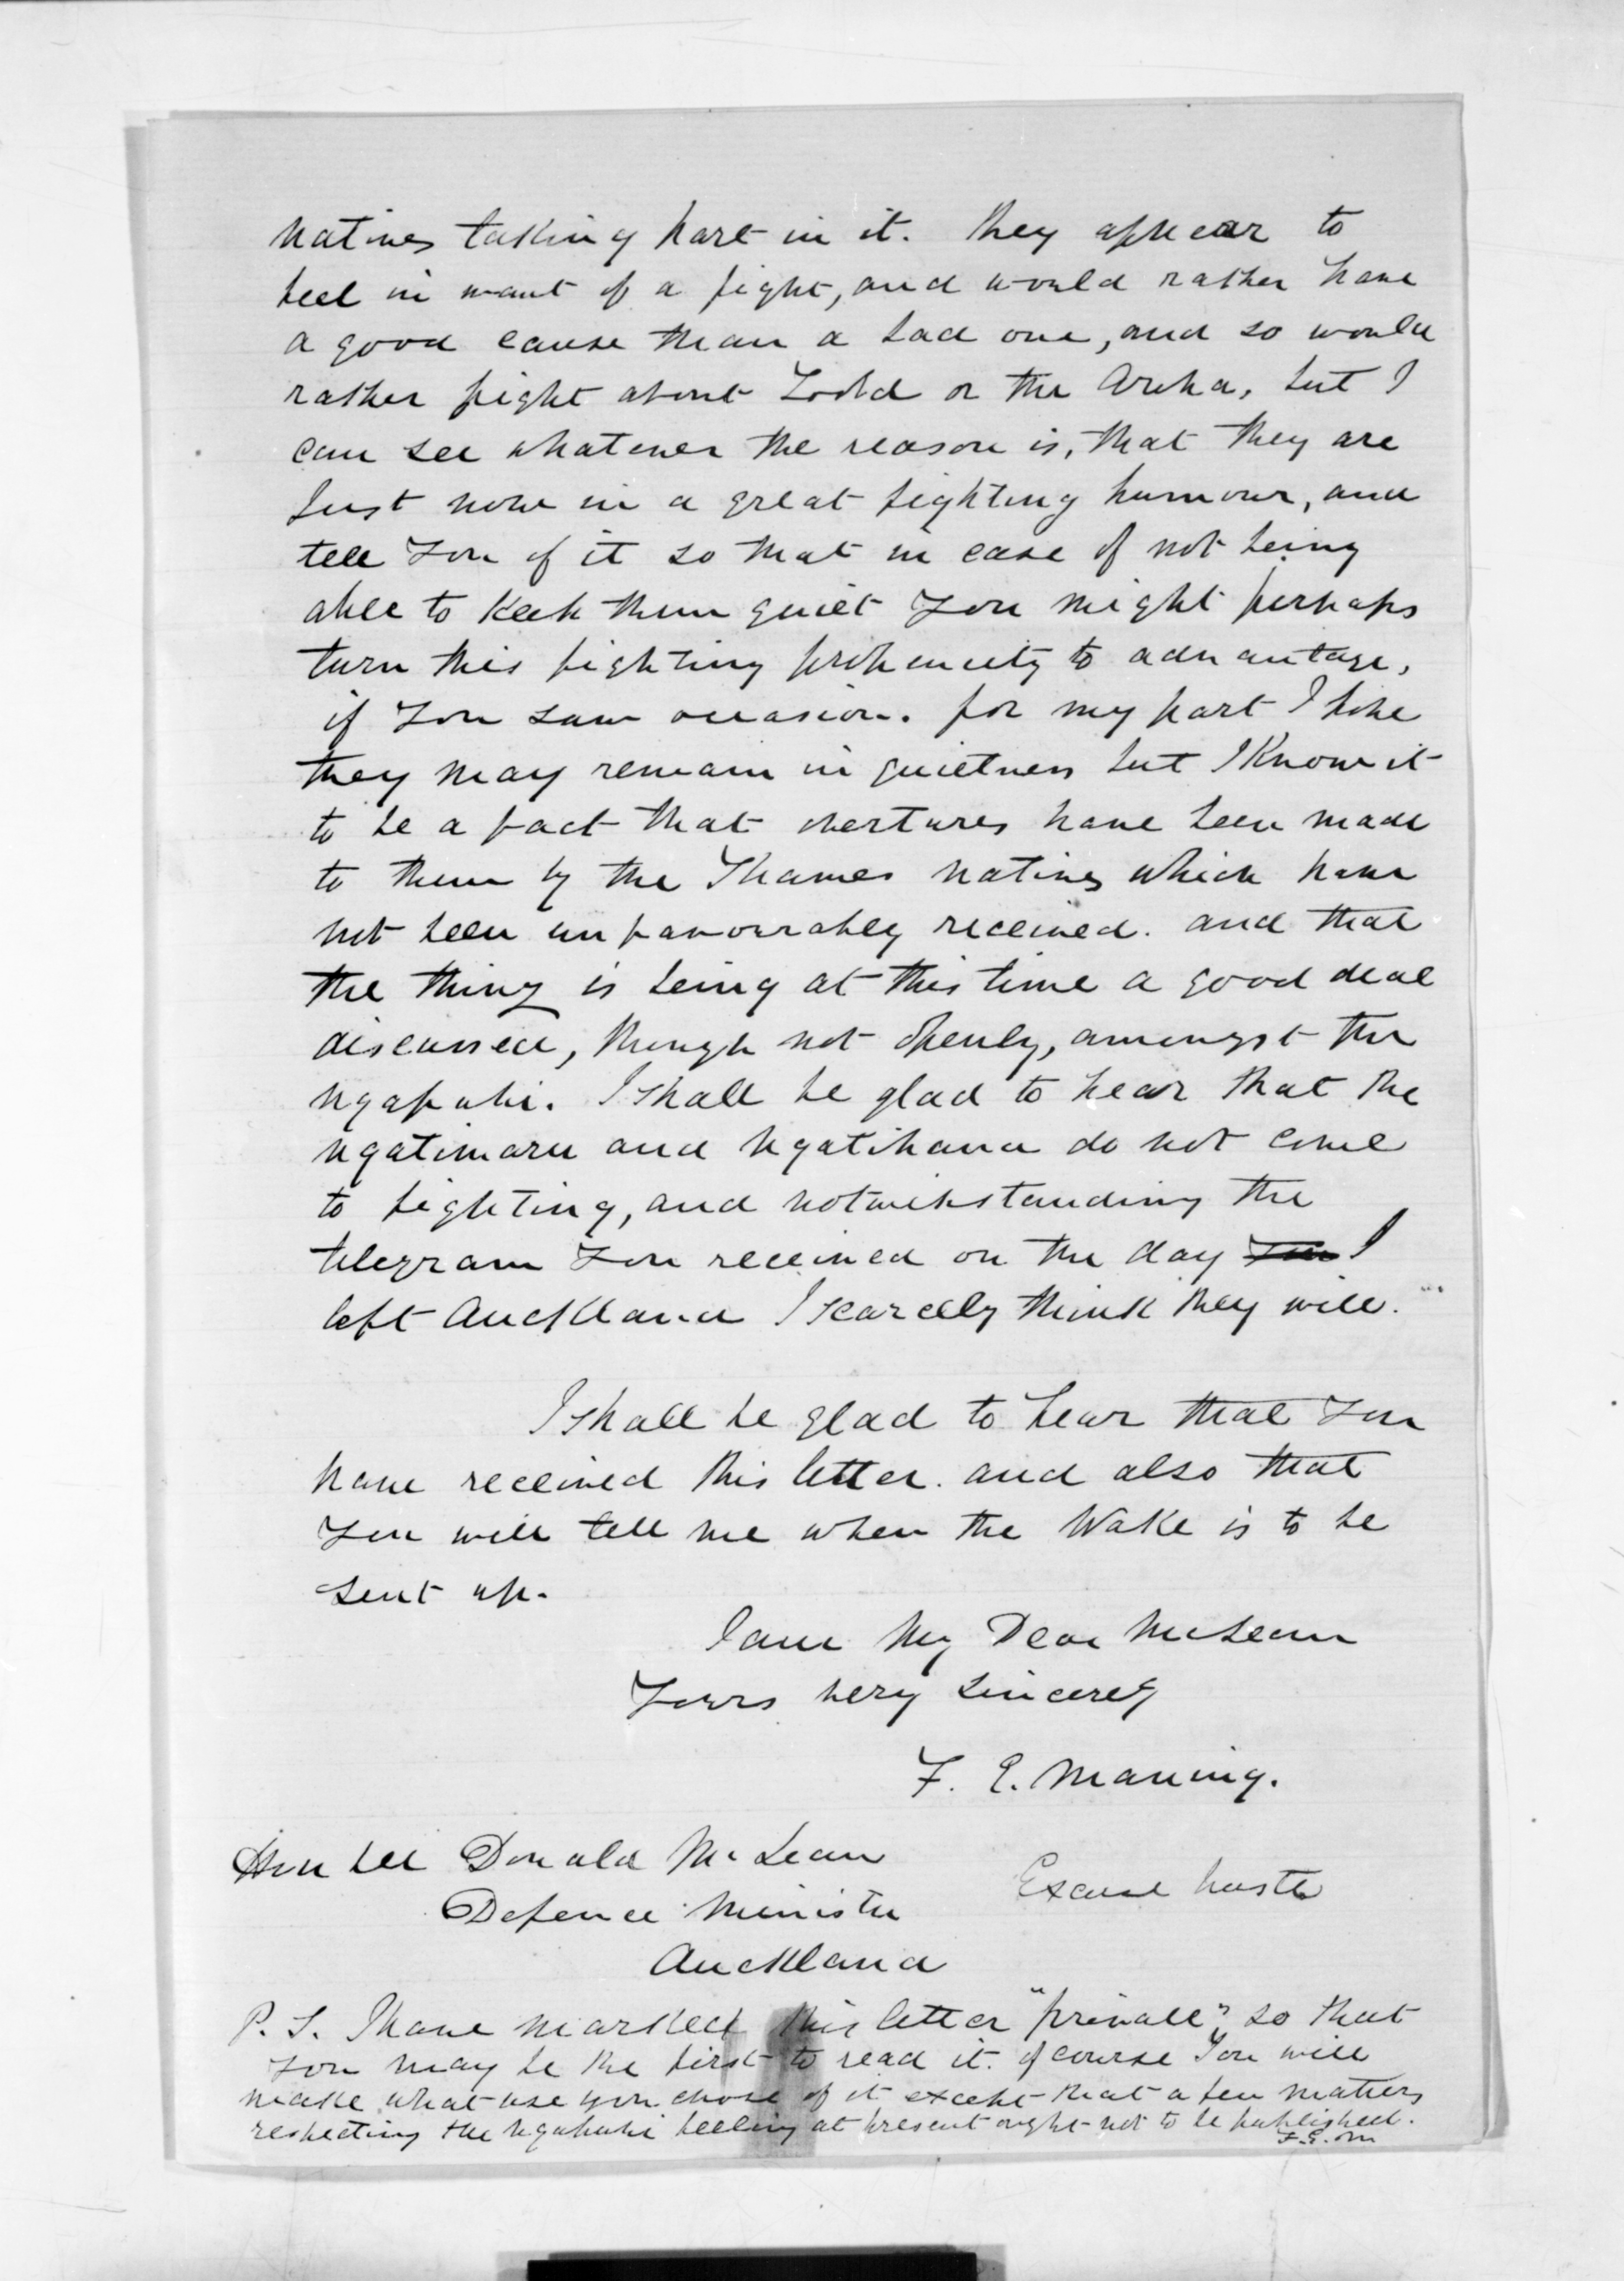 natives taking part in it. they appear to
feel in want of a fight, and would rather have
a good cause than a bad one, and so would
rather fight about Todd or the Aroha, but I
can see whatever the reason is, that they are
Just now in a great fighting humour, and
tell You of it so that in case of not being
able to keep them quiet You might perhaps
turn this fighting propencity to advantage,
if You saw occasion. for my part I hope
they may remain in quietness but I Know it
to be a fact that overtures have been made
to them by the Thames natives which have
not been unfavourabley received. and that
the thing is being at this time a good deal
discussed, though not openly, amongst the
ngapuhi. I shall be glad to hear that the
ngatimaru and ngatihaua do not come
to fighting, and notwithstanding the
telegram You received on the day You I
left Auckland I scarcely think they will.
I shall be glad to hear that You
have received this letter. and also that
You will tell me when the Wake is to be
sent up.
I am My Dear McLean
Yours very sincerey
F. E. Maning.
Donald McLean
Excuse haste
Defence Minister
Auckland
P. S. I have marked this letter "private" so that
You may be the first to read it. of course You will
make what use you chose of it except that a few matters
respecting the ngapuhi feeling at present ought not to be published.
F.E.M